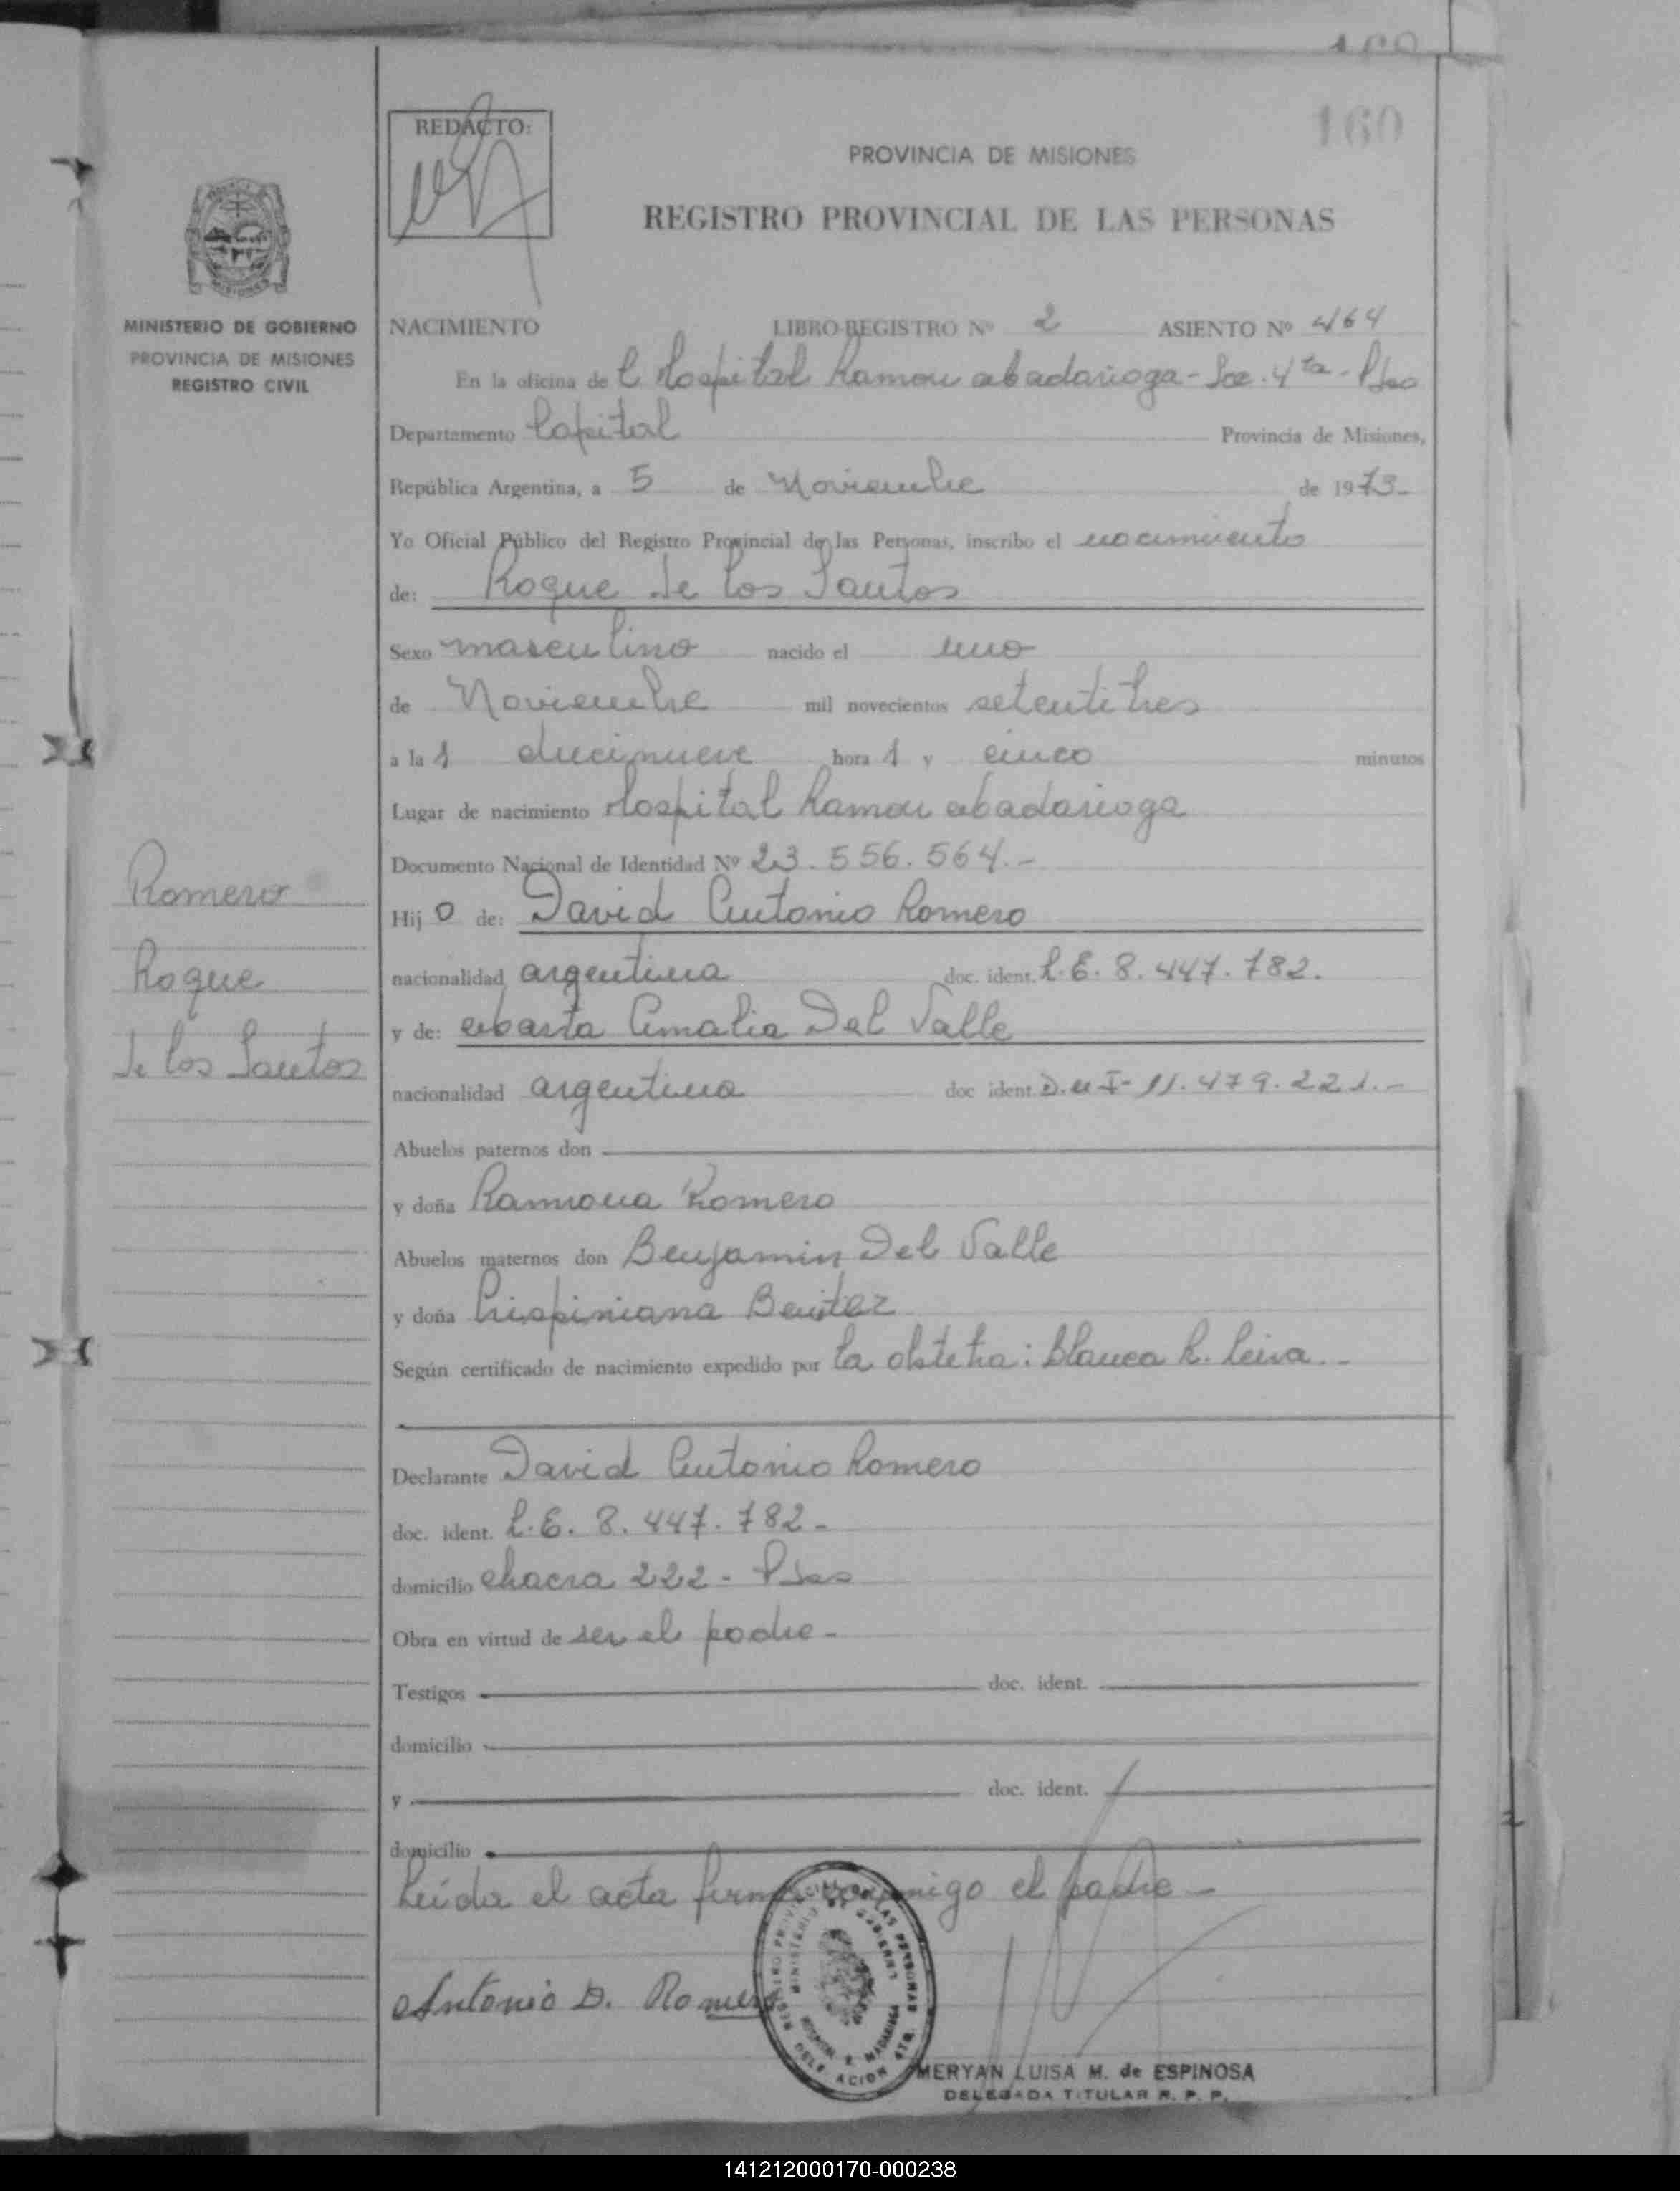 160
160
REDACTO:
PROVINCIA DE MISIONES
REGISTRO PROVINCIAL DE LAS PERSONAS
MINISTERIO DE GOBIERNO
PROVINCIA DE MISIONES
REGISTRO CIVIL
NACIMIENTO LIBRO-REGISTRO Nº 2 ASIENTO Nº 464
En la oficina de l Hospital Ramon Madariaga - Sec. 4ta - Psas
Departamento Capital Provincia de Misiones,
República Argentina, a 5 de Noviembre de 1973.-
Yo Oficial Público del Registro Provincial de las Personas, inscribo el nacimiento
de: Roque de los Santos
Sexo masculino nacido el uno
de Noviembre mil novecientos setentitres
a la s diecinueve hora s y cinco minutos
Lugar de nacimiento Hospital Ramon Madariaga
Documento Nacional de Identidad Nº 23.556.564.-
Romero
Roque
de los Santos
Hij o de: David Antonio Romero
nacionalidad argentina doc. ident. L.E. 8.447.782.
y de: Marta Amalia Del Valle
nacionalidad argentina doc ident. D.N.I- 11.479.221.-
Abuelos paternos don
y doña Ramona Romero
Abuelos maternos don Benjamin Del Valle
y doña Crispiniana Benitez
Según certificado de nacimiento expedido por la obstetra: Blanca R. Leiva.-
Declarante David Antonio Romero
doc. ident. L.E. 8.447.782-
domicilio chacra 222 - Psas
Obra en virtud de ser el padre-
Testigos doc. ident.
domicilio
y doc. ident.
domicilio
Leída el acta firma conmigo el padre-
Antonio D. Romero
REGISTRO PROVINCIAL DE LAS PERSONAS
MINISTERIO DE GOBIERNO
HOSPITAL R. MADARIAGA
DELEGACION 4TA.
MERYAN LUISA M. de ESPINOSA
DELEGADA TITULAR R. P. P.
141212000170-000238